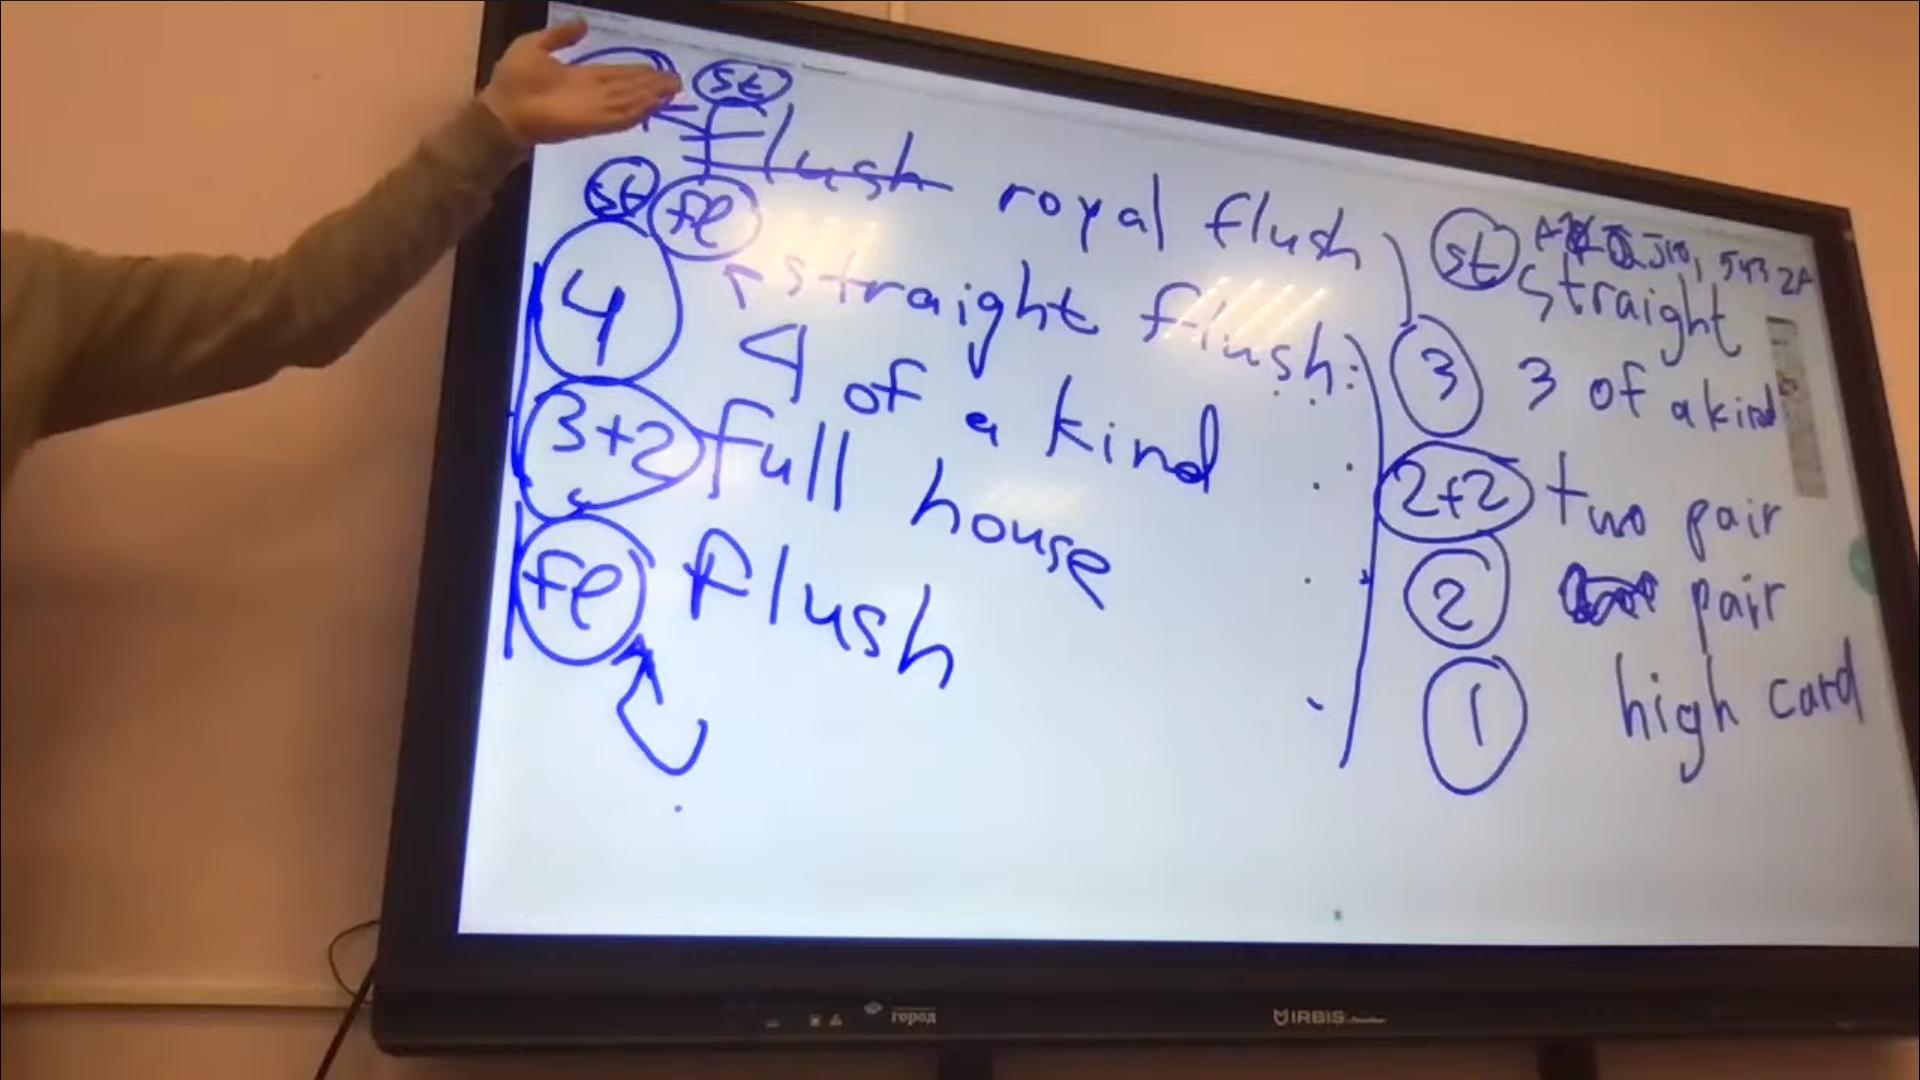 st
flush royal flush
st fl
straight flush:
4 4 of a kind
3+2 full house
fl flush
st J10, 5432A
straight
3 3 of a kind
2+2 two pair
2 pair
1 high card
город
IRBIS